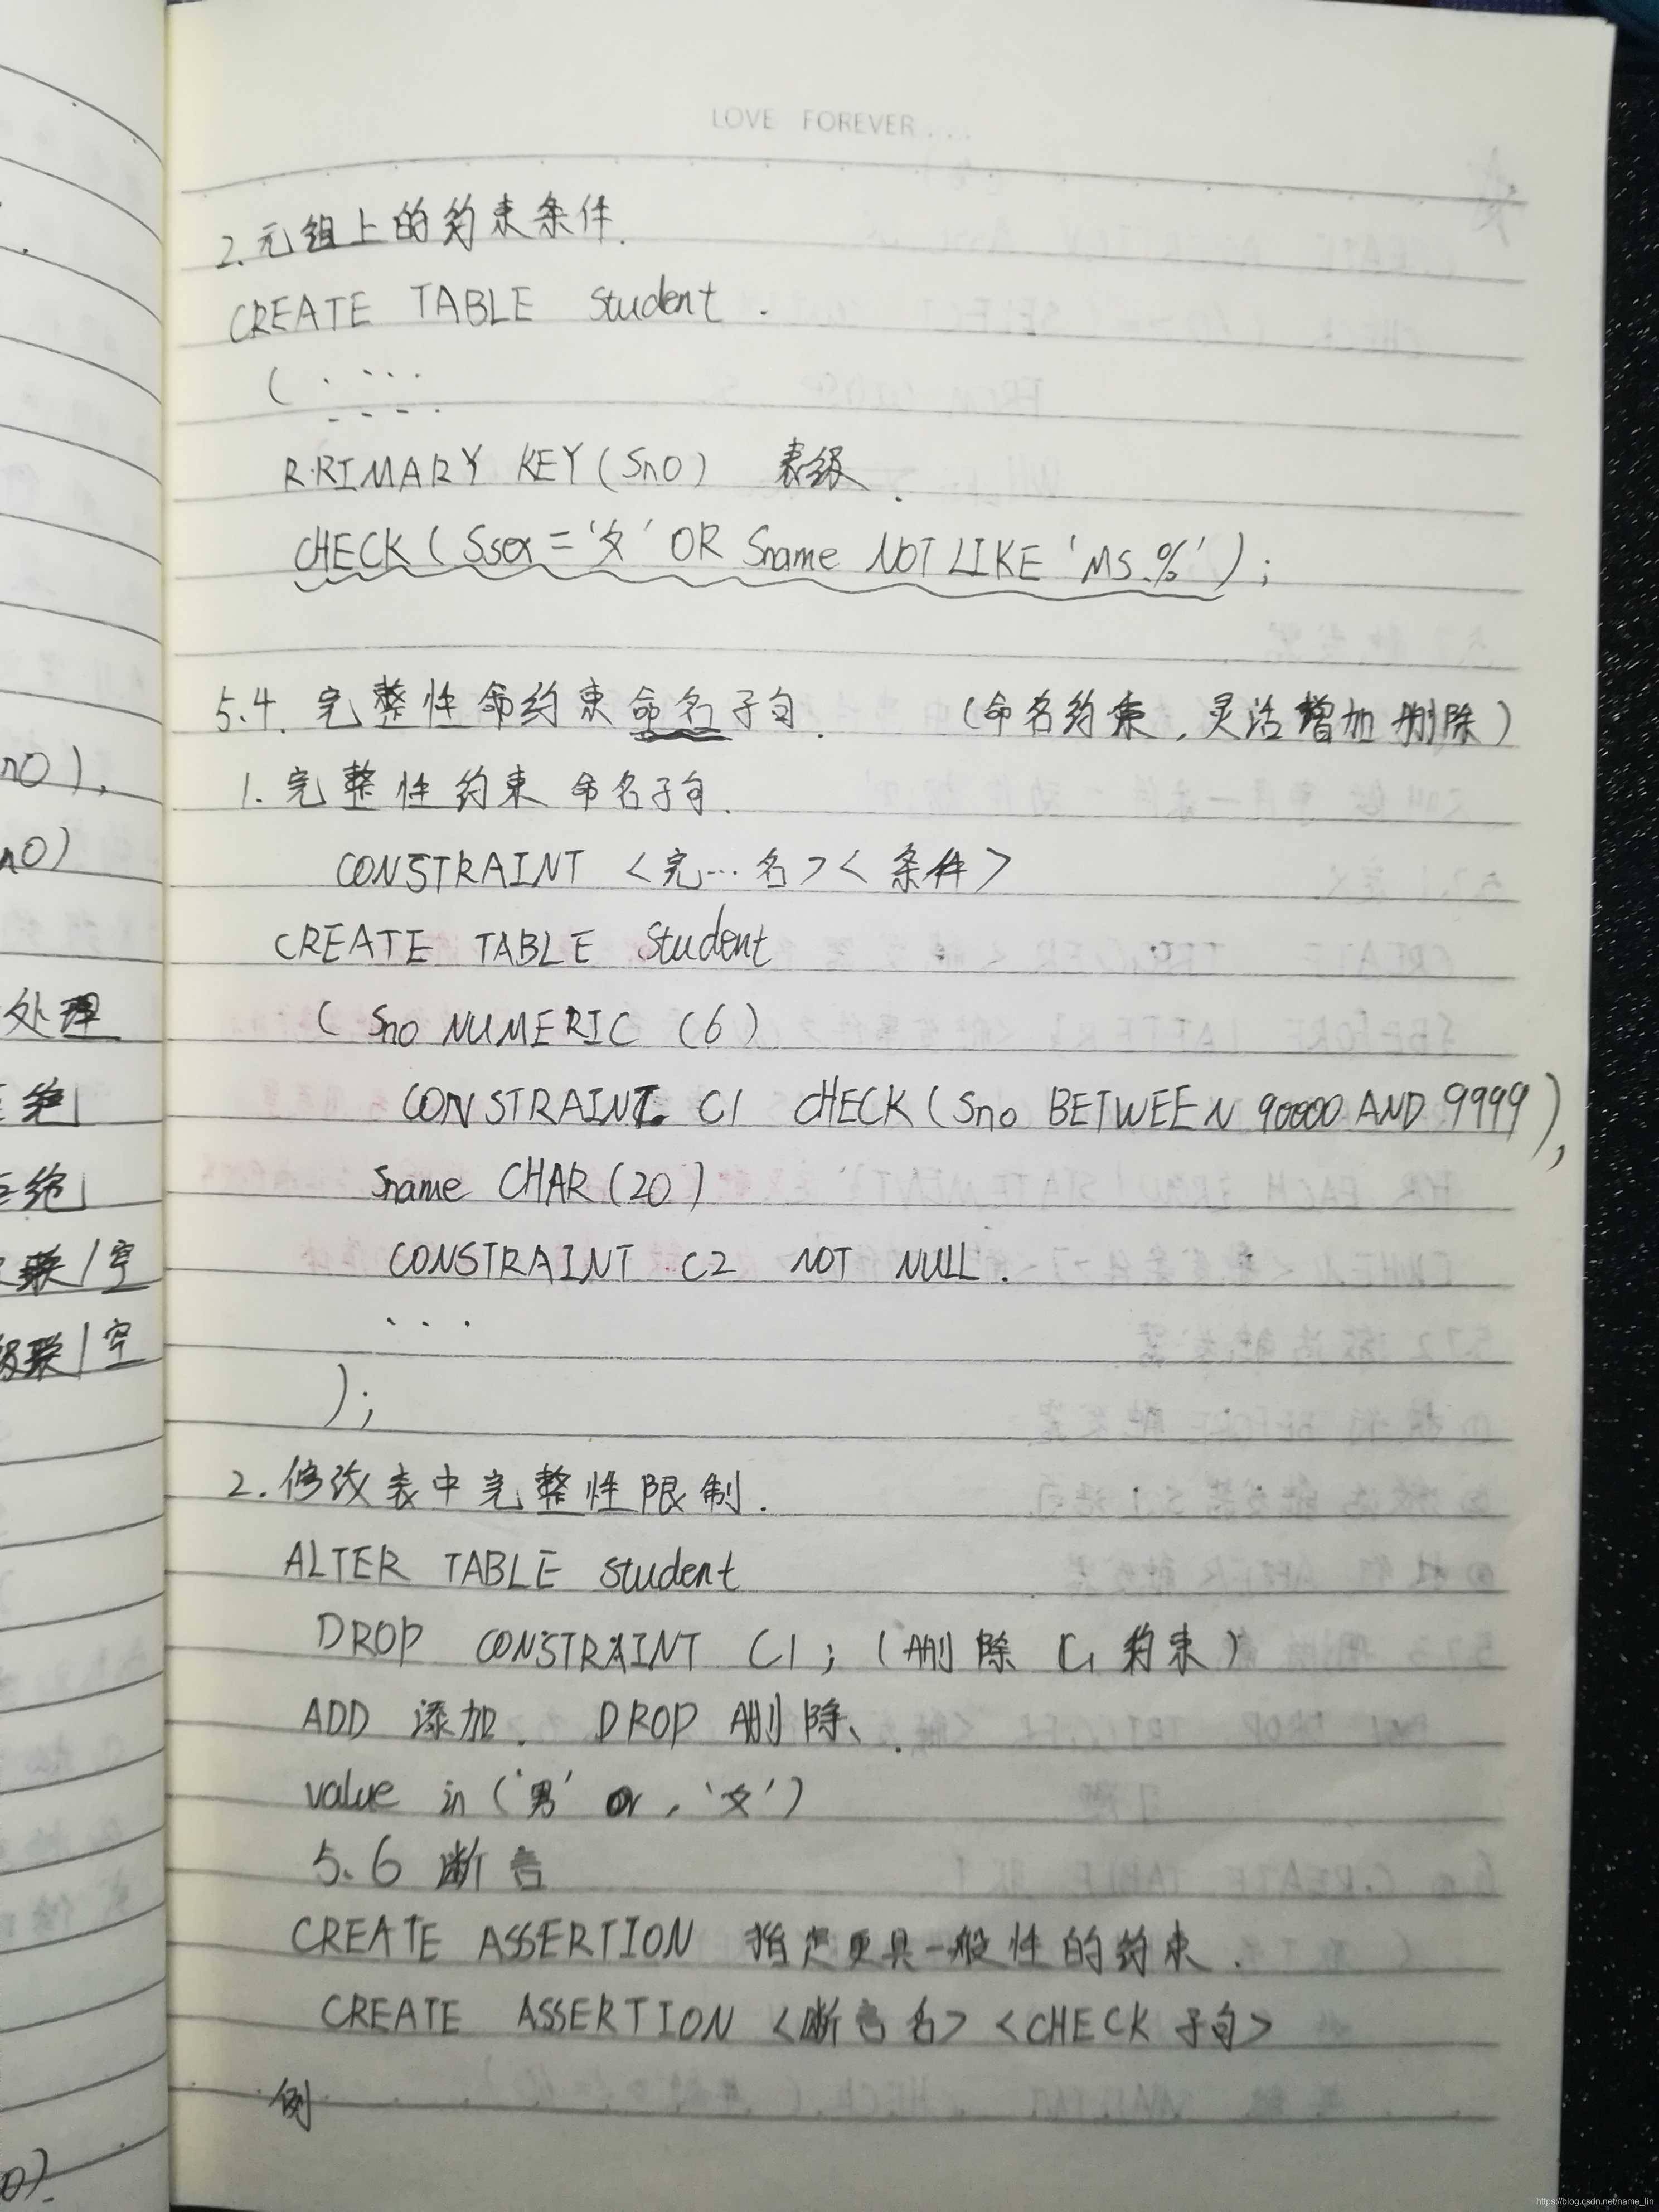 LOVE FOREVER...
2.元组上的约束条件.
CREATE TABLE Student.
(.....
- - - .
RRIMARY KEY(SnO) 表级.
CHECK(Ssex='女' OR Sname NOT LIKE 'MS.%');
5.4. 完整性命约束命名子句. (命名约束,灵活增加删除)
1.完整性约束命名子句.
CONSTRAINT <完…名><条件>
CREATE TABLE Student
(Sno NUMERIC (6)
CONSTRAINT C1 CHECK(Sno BETWEEN 90000 AND 9999),
Sname CHAR(20)
CONSTRAINT C2 NOT NULL.
...
);
2.修改表中完整性限制.
ALTER TABLE Student
DROP CONSTRAINT C1;(删除 C1 约束)
ADD 添加. DROP 删除、.
value in('男' or,'女')
5.6 断言
CREATE ASSERTION 指定更具一般性的约束.
CREATE ASSERTION <断言名> <CHECK 子句>
例
nO),
nO)
处理
绝
绝
联/空
级联/空
0).
https://blog.csdn.net/name_lin